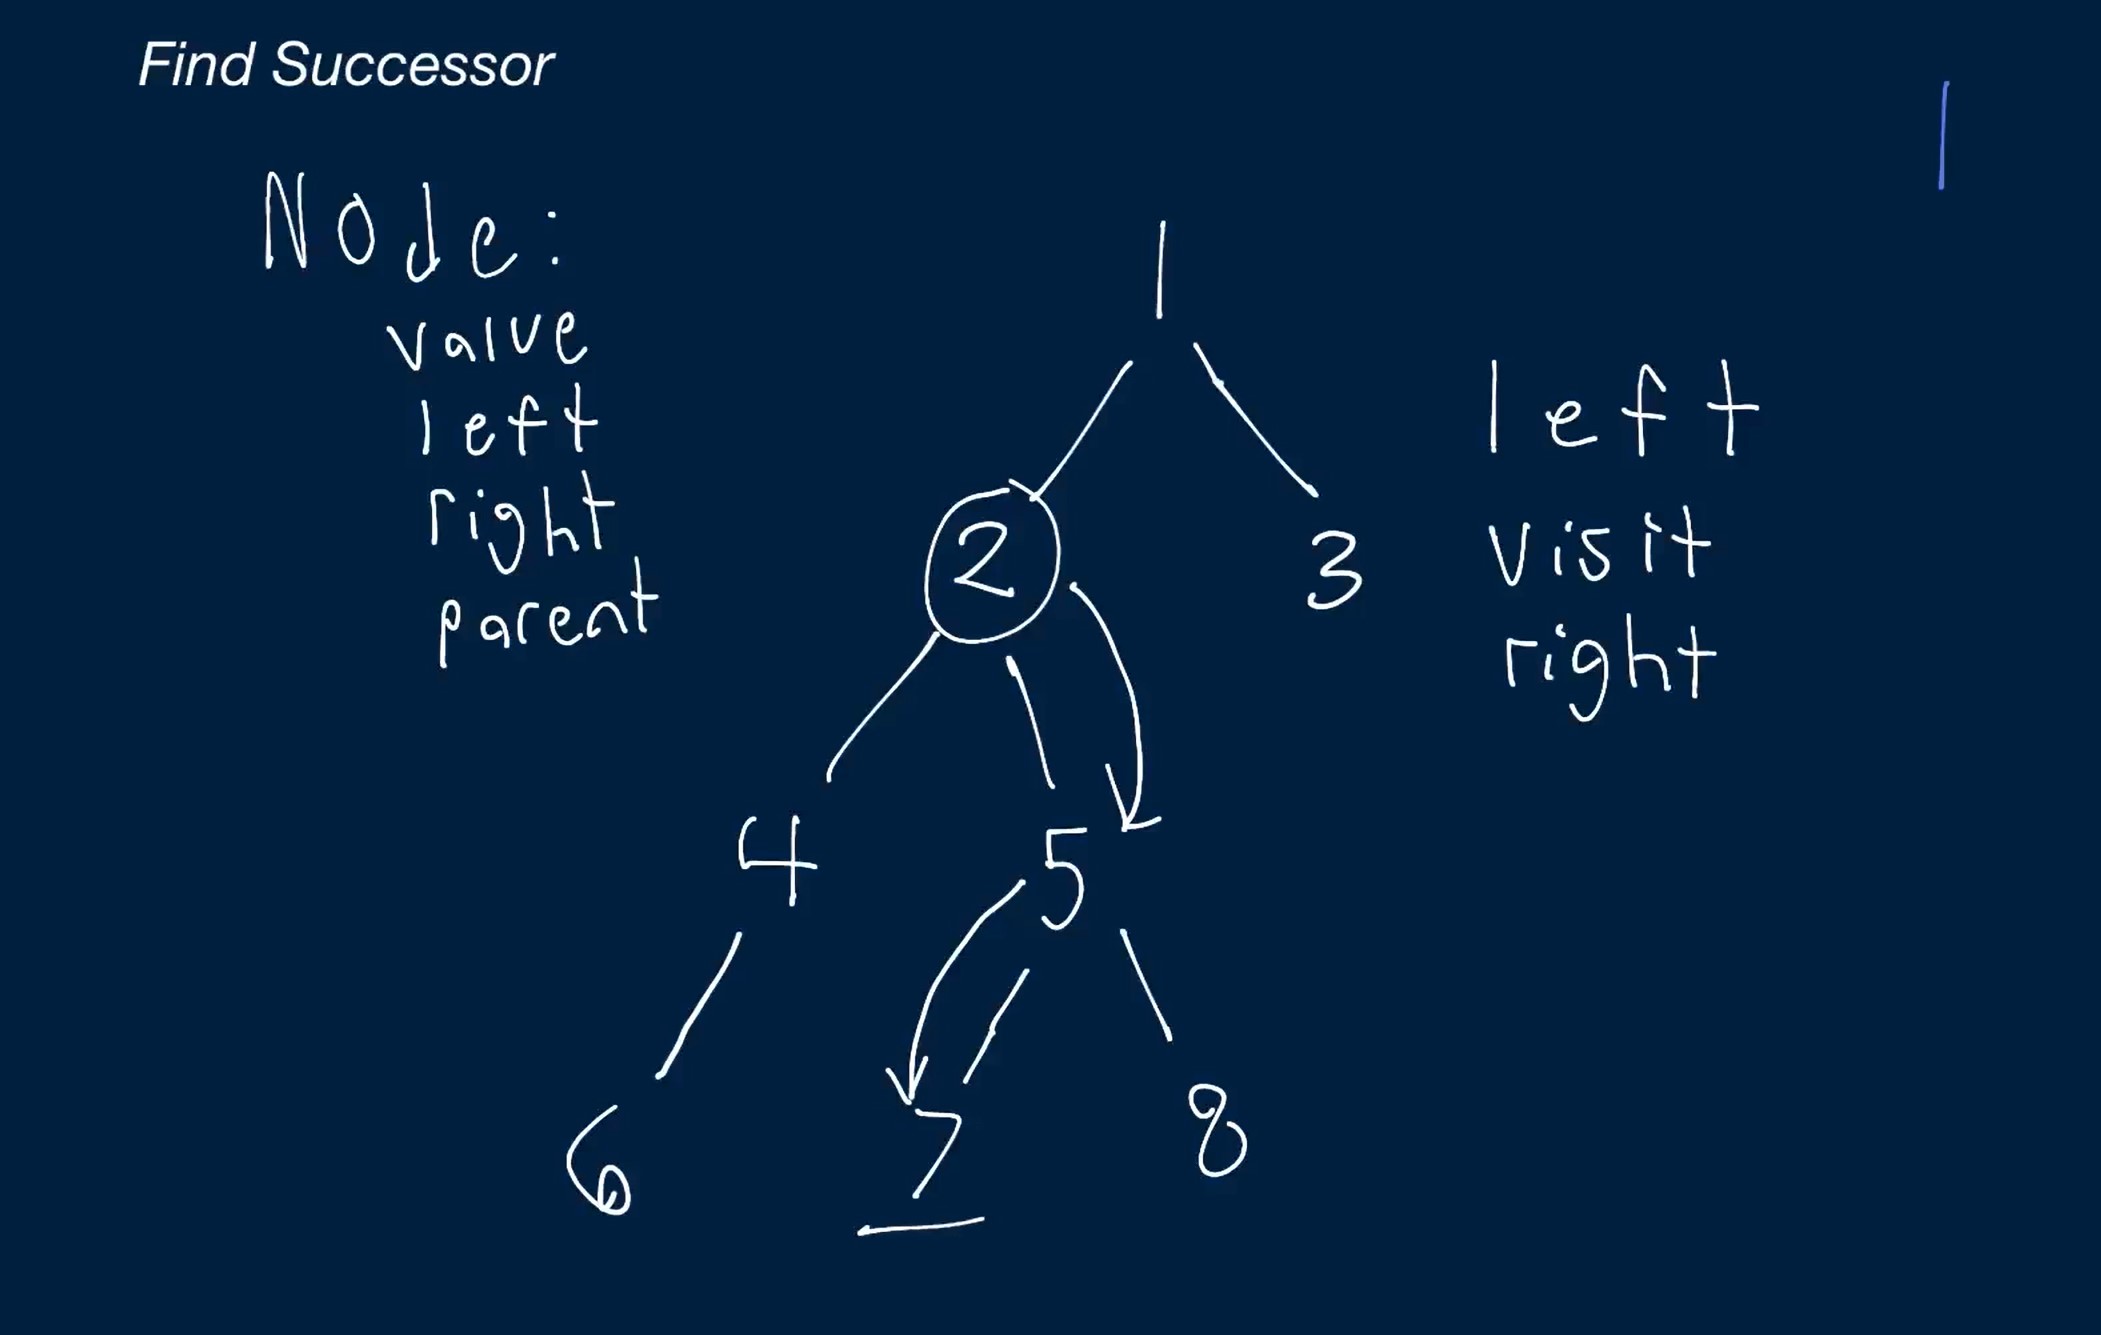 Find Successor
Node:
value
left
right
parent
1
2
3
4
5
6
7
8
left
visit
right